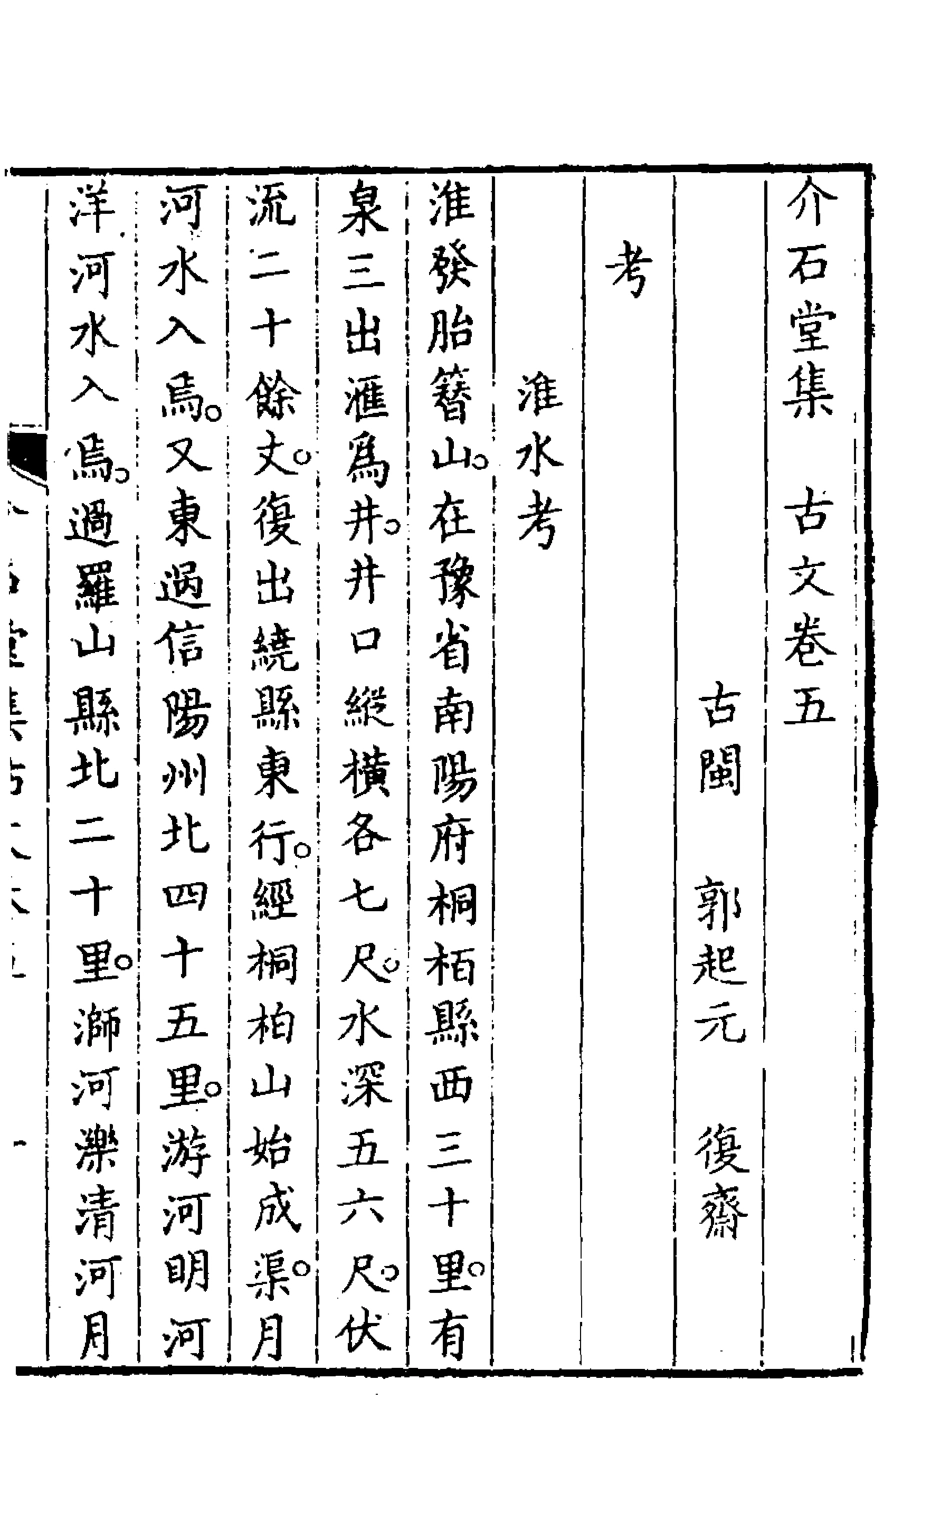 介石堂集　古文卷五
古閩　郭起元　復齋
考
淮水考
淮發胎簪山。在豫省南陽府桐栢縣西三十里。有
泉三出滙爲井。井口縱橫各七尺。水深五六尺。伏
流二十餘丈。復出繞縣東行。經桐柏山始成渠。月
河水入焉。又東過信陽州北四十五里。游河明河
洋河水入焉。過羅山縣北二十里。溮河濼清河月